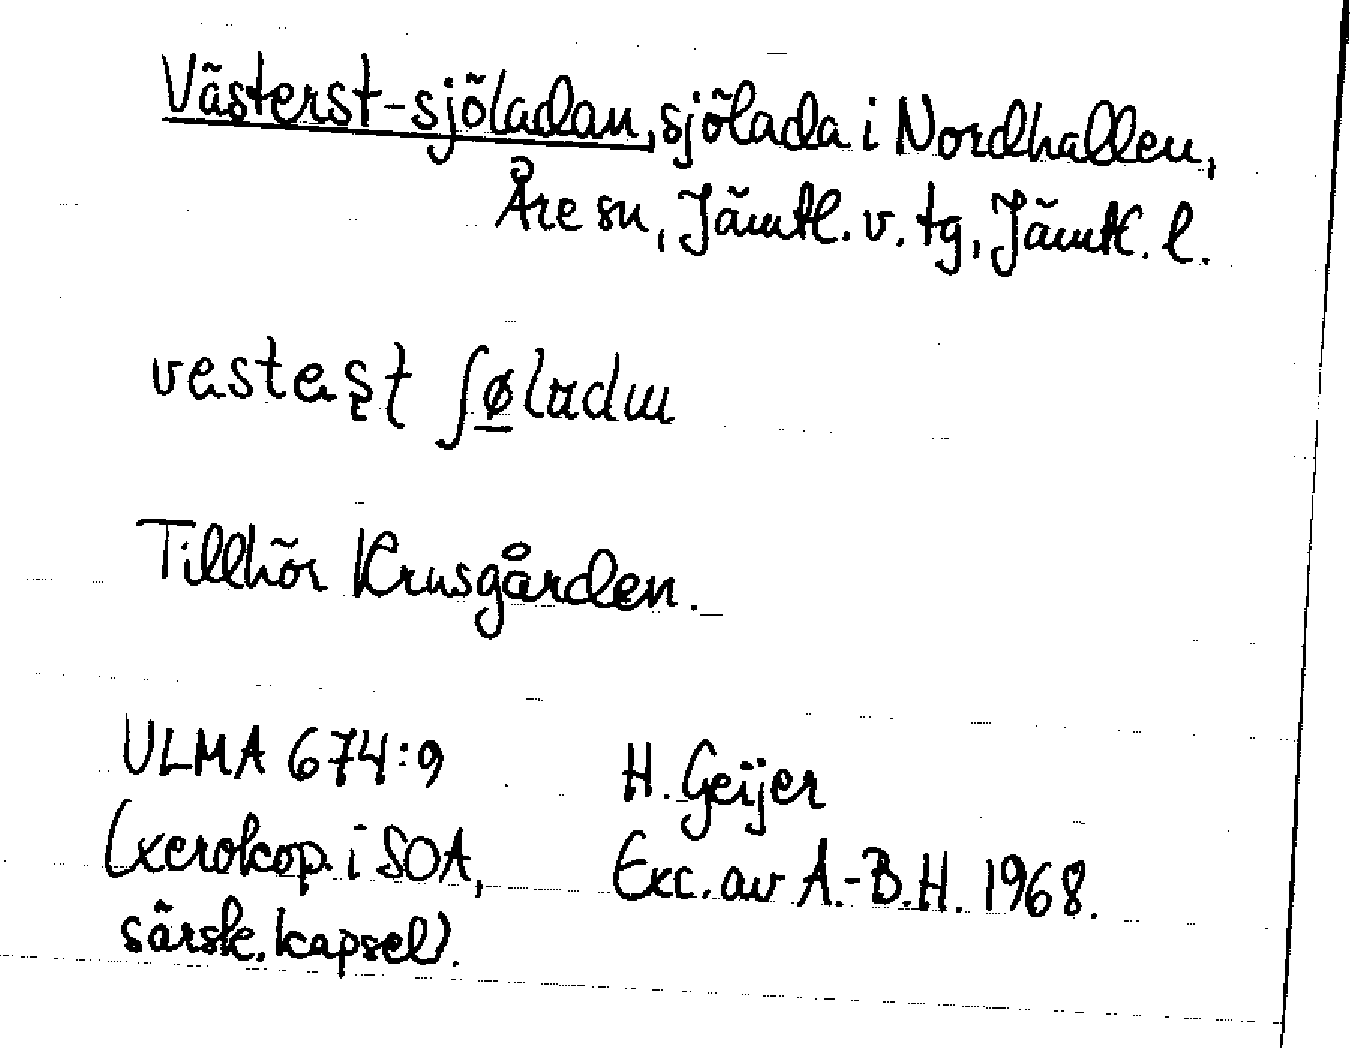 Västerst-sjöladan, sjölada i Nordhallen,
Åre sn, Jämtl. v. tg, Jämtl. l.
Tillhör Krusgården.
ULMA 674:9 H. Geijer
(xerokop. i SOA, Exc. av A.-B.H. 1968.
särsk. kapsel).